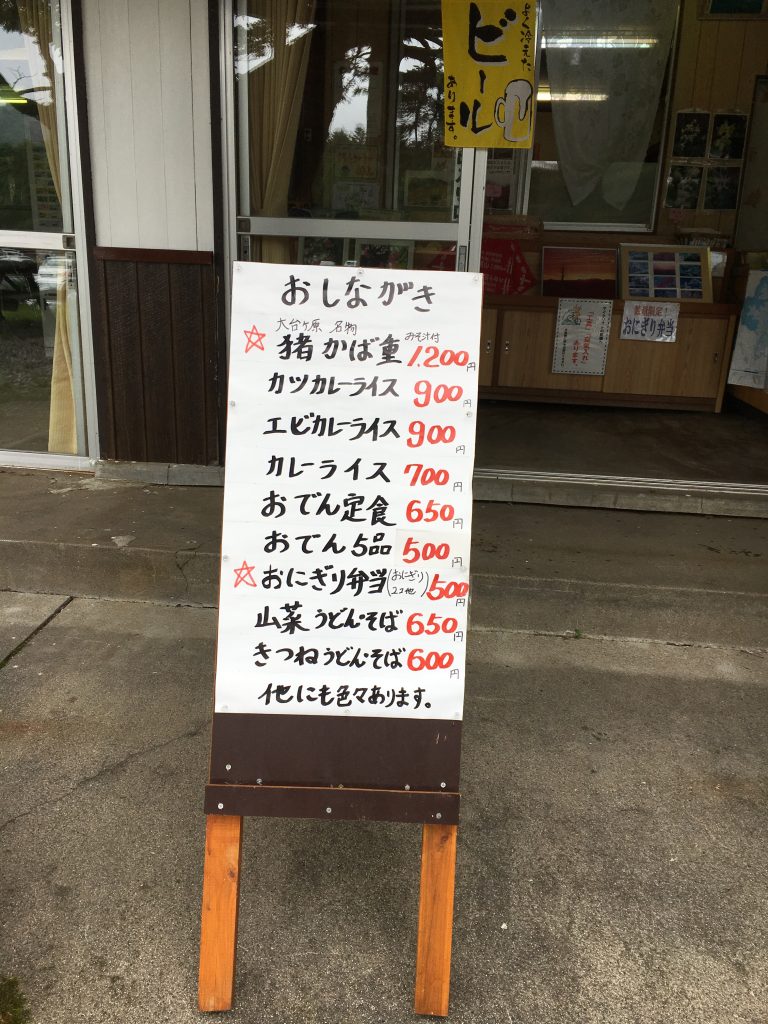 よく冷えた
ビール
あります。
おしながき
大台ケ原 名物
☆猪かば重 みそ汁付 1,200円
カツカレーライス 900円
エビカレーライス 900円
カレーライス 700円
おでん定食 650円
おでん5品 500円
☆おにぎり弁当(おにぎり2コ他) 500円
山菜うどん・そば 650円
きつねうどん・そば 600円
他にも色々あります。
おにぎり弁当
あります